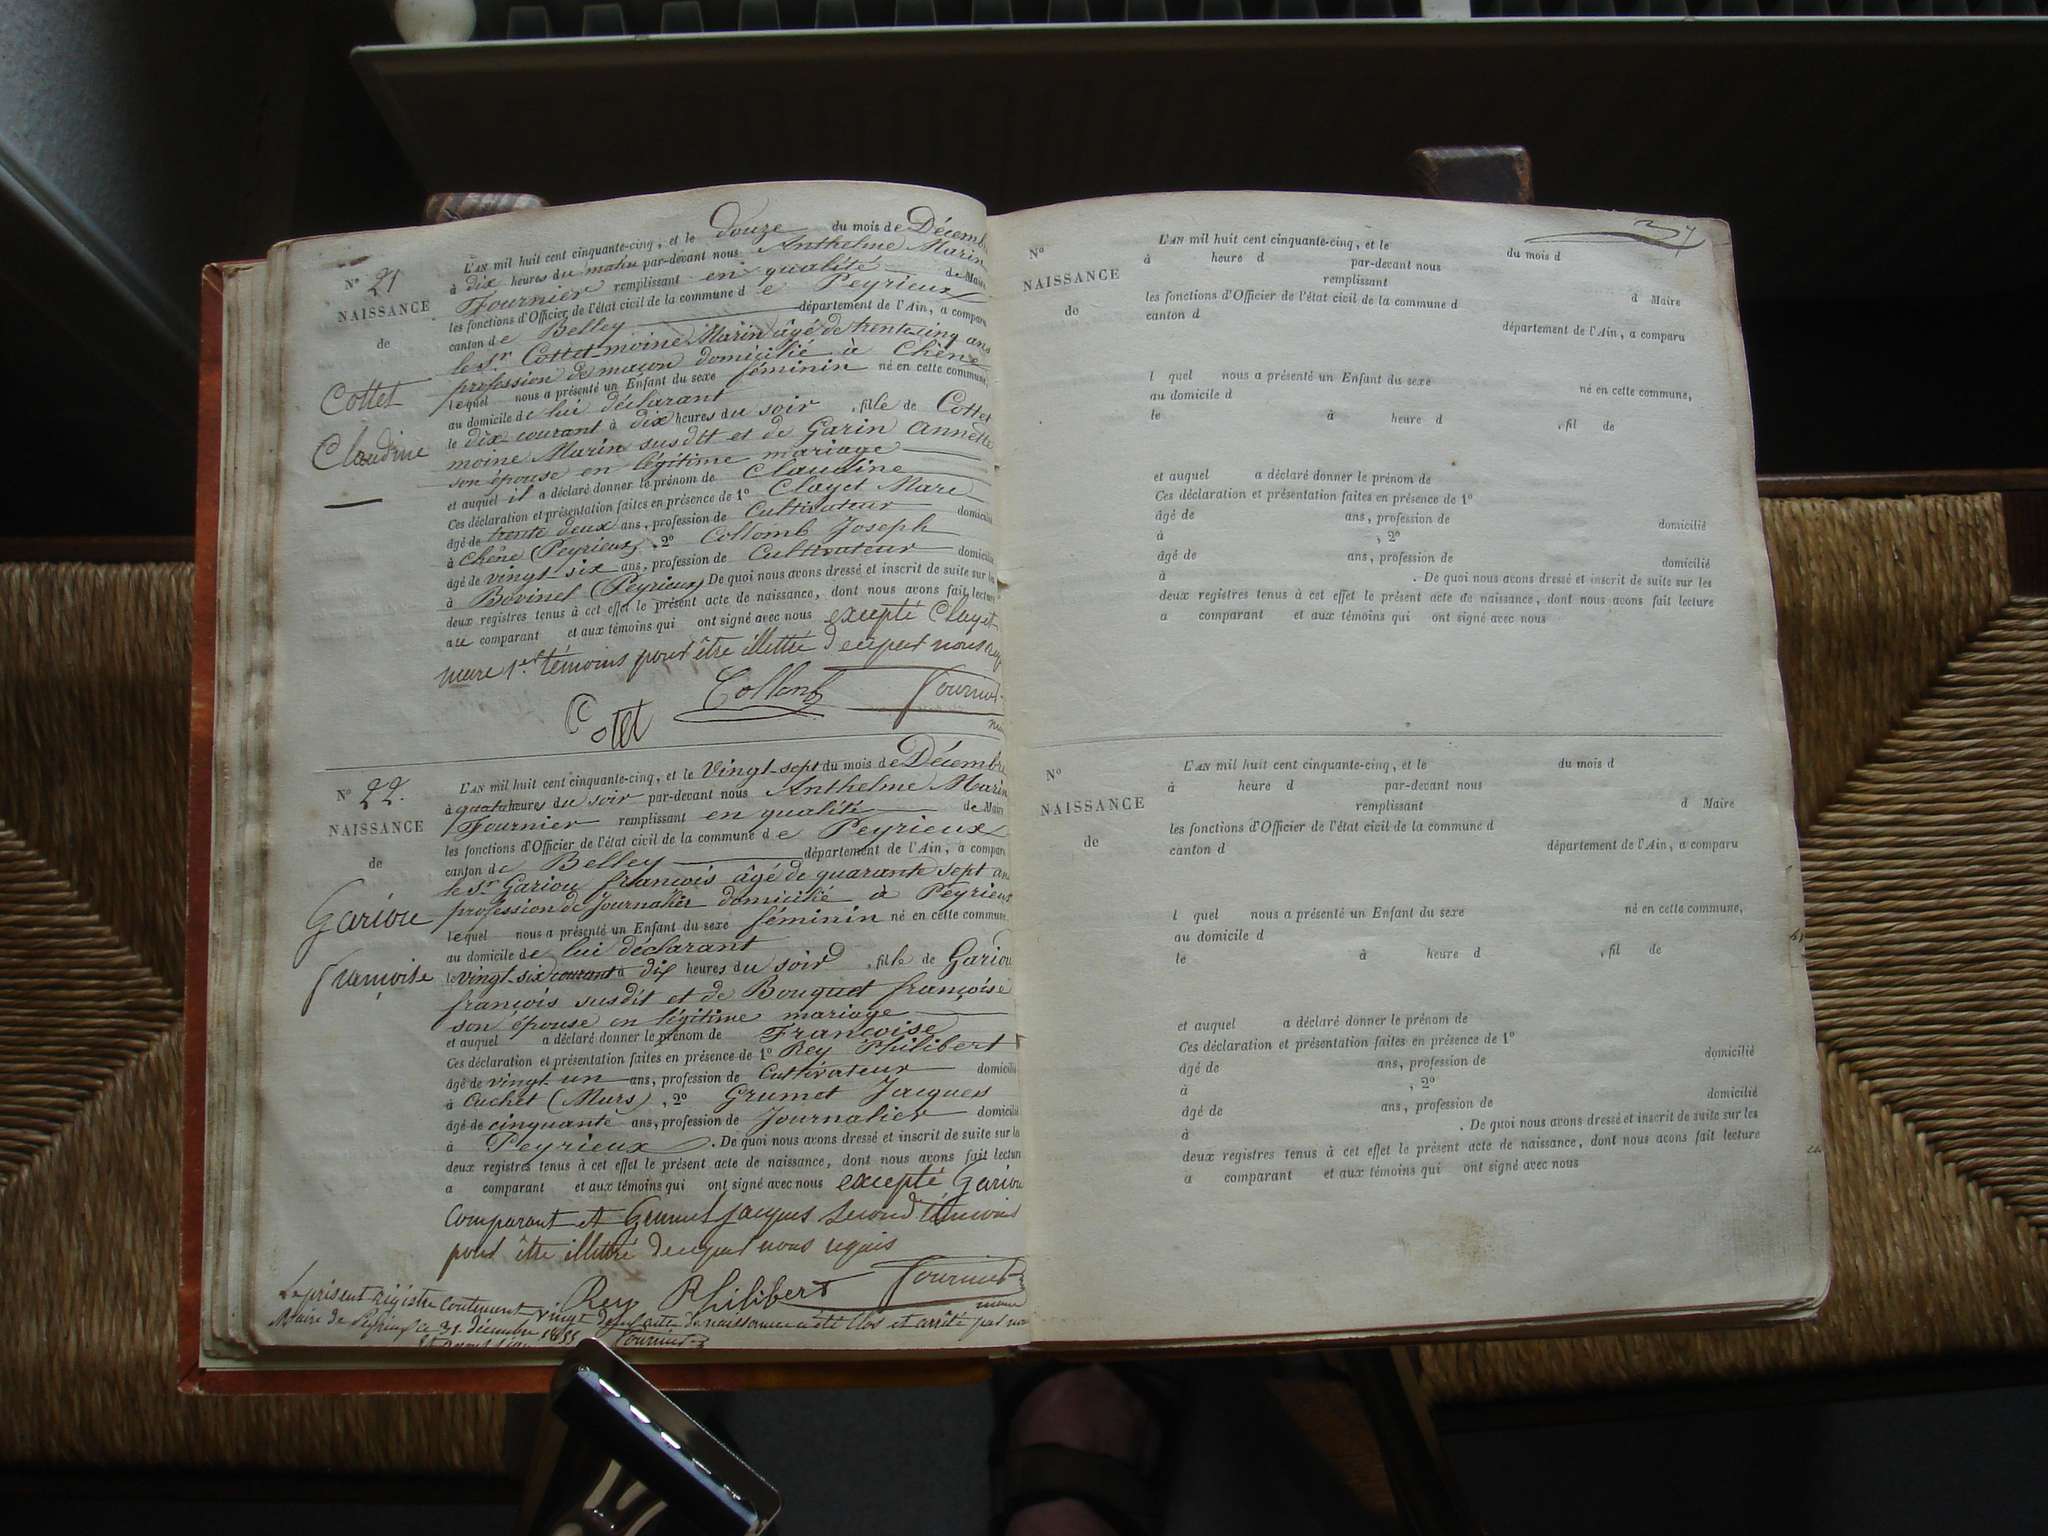 N° 21
NAISSANCE
de
Cottet
Claudine
L'AN mil huit cent cinquante-cinq, et le douze du mois de Décemb
à dix heures du matin par-devant nous Anthelme Marin
Fournier remplissant en qualité de Maire
les fonctions d'Officier de l'état civil de la commune de Peyrieux
canton de Belley département de l'Ain, a comparu
le Sr. Cottet-moine Marin âgé de trente-cinq ans
profession de maçon domicilié à Chêne
lequel nous a présenté un Enfant du sexe féminin né en cette commune,
au domicile de lui déclarant
le dix courant à dix heures du soir, fille de Cottet
moine Marin susdit et de Garin Annette
son épouse en légitime mariage
et auquel il a déclaré donner le prénom de Claudine
Ces déclaration et présentation faites en présence de 1° Clayet Mare
âgé de trente deux ans, profession de Cultivateur domicilié
à Chêne (Peyrieux), 2° Collomb Joseph
âgé de vingt-six ans, profession de Cultivateur domicilié
à Bovinel (Peyrieux) De quoi nous avons dressé et inscrit de suite sur les
deux registres tenus à cet effet le présent acte de naissance, dont nous avons fait lecture
au comparant et aux témoins qui ont signé avec nous excepté Clayet
mare 1er témoins pour être illettré
Cotet Collomb Fournier
N° 22.
NAISSANCE
de
Gariou
françoise
L'AN mil huit cent cinquante-cinq, et le Vingt-sept du mois de Décembre
à quatre heures du soir par-devant nous Anthelme Marin
Fournier remplissant en qualité de Maire
les fonctions d'Officier de l'état civil de la commune de Peyrieux
canton de Belley département de l'Ain, a comparu
le Sr Gariou françois âgé de quarante sept ans
profession de journalier domicilié à Peyrieux
lequel nous a présenté un Enfant du sexe féminin né en cette commune,
au domicile de lui déclarant
le vingt-six courant à dix heures du soir, fille de Gariou
françois susdit et de Bouquet françoise
son épouse en légitime mariage
et auquel a déclaré donner le prénom de Françoise
Ces déclaration et présentation faites en présence de 1° Rey Philibert
âgé de vingt-un ans, profession de Cultivateur domicilié
à Cuchet (Murs), 2° Grumet Jacques
âgé de cinquante ans, profession de Journalier domicilié
à Peyrieux. De quoi nous avons dressé et inscrit de suite sur les
deux registres tenus à cet effet le présent acte de naissance, dont nous avons fait lecture
a comparant et aux témoins qui ont signé avec nous excepté Gariou
comparant et Grumet jacques second témoins
pour être illettré de ce par nous requis
Rey Philibert Fournier
Le présent registre contenant vingt deux actes de naissance a été clos et arrêté par nous
Maire de Peyrieux ce 31 décembre 1855
Fournier
L'AN mil huit cent cinquante-cinq, et le du mois d
N° à heure d par-devant nous
NAISSANCE remplissant d Maire
de les fonctions d'Officier de l'état civil de la commune d
canton d département de l'Ain, a comparu
l quel nous a présenté un Enfant du sexe né en cette commune,
au domicile d
le à heure d, fil de
et auquel a déclaré donner le prénom de
Ces déclaration et présentation faites en présence de 1°
âgé de ans, profession de domicilié
à , 2°
âgé de ans, profession de domicilié
à . De quoi nous avons dressé et inscrit de suite sur les
deux registres tenus à cet effet le présent acte de naissance, dont nous avons fait lecture
a comparant et aux témoins qui ont signé avec nous
L'AN mil huit cent cinquante-cinq, et le du mois d
N° à heure d par-devant nous
NAISSANCE remplissant d Maire
de les fonctions d'Officier de l'état civil de la commune d
canton d département de l'Ain, a comparu
l quel nous a présenté un Enfant du sexe né en cette commune,
au domicile d
le à heure d, fil de
et auquel a déclaré donner le prénom de
Ces déclaration et présentation faites en présence de 1°
âgé de ans, profession de domicilié
à , 2°
âgé de ans, profession de domicilié
à . De quoi nous avons dressé et inscrit de suite sur les
deux registres tenus à cet effet le présent acte de naissance, dont nous avons fait lecture
a comparant et aux témoins qui ont signé avec nous